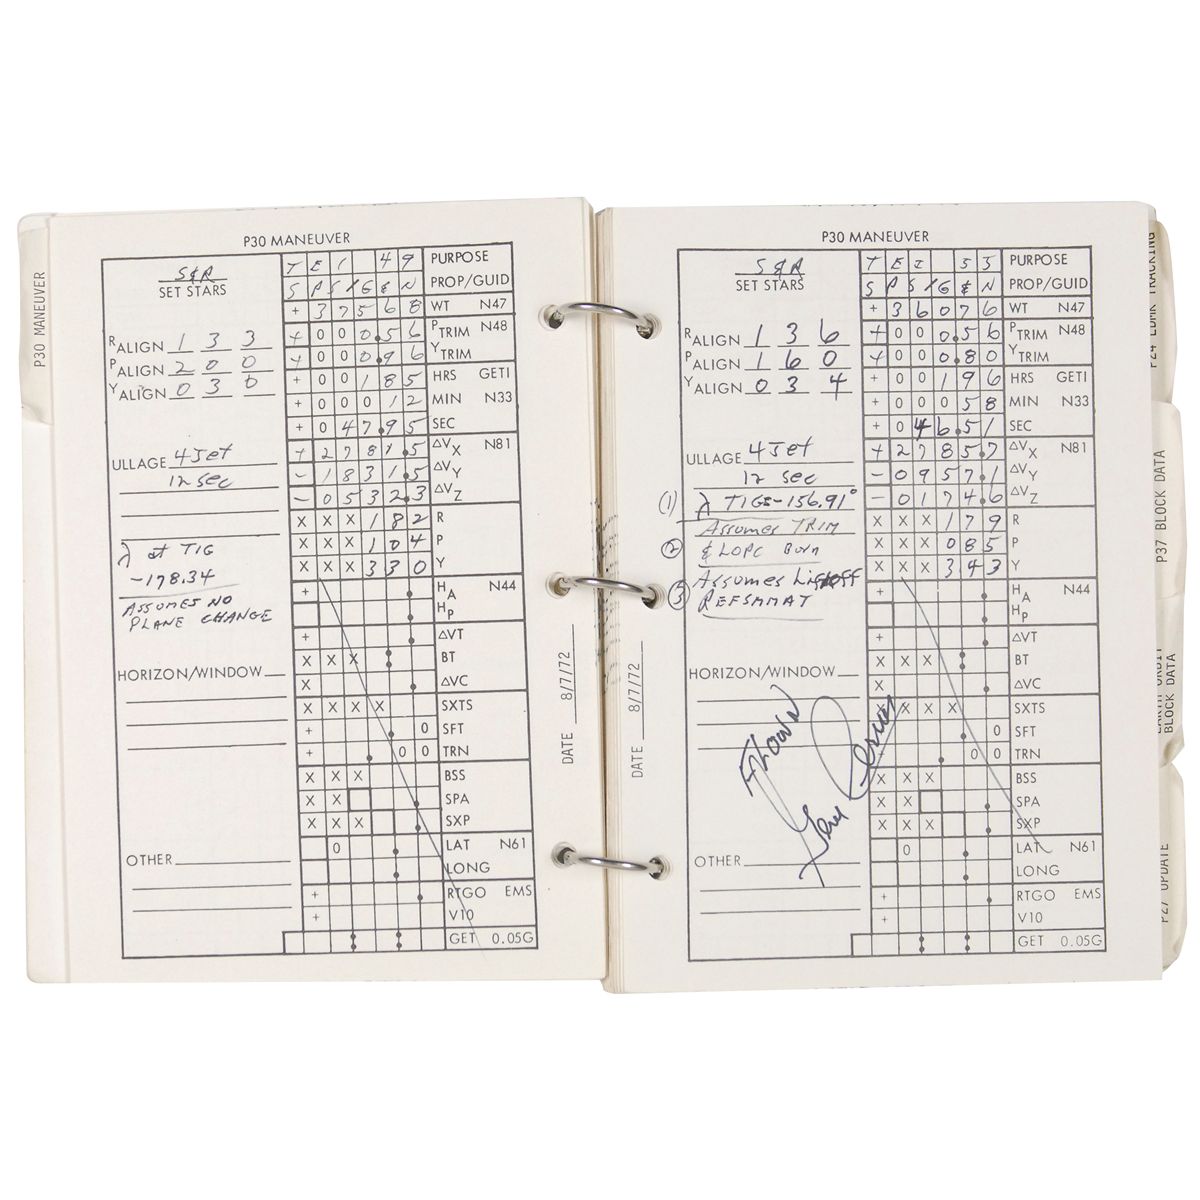 P30 MANEUVER
P30 MANEUVER
S&R
SET STARS
R ALIGN 1 3 3
P ALIGN 2 0 0
Y ALIGN 0 3 0
ULLAGE 4 Jet
12 sec
λ at TIG
-178.34
ASSUMES NO
PLANE CHANGE
HORIZON/WINDOW
OTHER
T E I 4 9 PURPOSE
S P S / G & N PROP/GUID
+ 3 7 5 6 8 WT N47
+ 0 0 0.5 6 P TRIM N48
+ 0 0 0.9 6 Y TRIM
+ 0 0 1 8 5 HRS GETI
+ 0 0 0 1 2 MIN N33
+ 0 4 7.9 5 SEC
+ 2 7 8 1.5 ΔVX N81
- 1 8 3 1.5 ΔVY
- 0 5 3 2.3 ΔVZ
X X X 1 8 2 R
X X X 1 0 4 P
X X X 3 3 0 Y
+ HA N44
HP
+ ΔVT
X X X BT
X ΔVC
X X X X SXTS
+ 0 SFT
+ 0 0 TRN
X X X BSS
X X SPA
X X X SXP
0 LAT N61
LONG
+ RTGO EMS
+ V10
GET 0.05G
DATE 8/7/72
P30 MANEUVER
S&R
SET STARS
R ALIGN 1 3 6
P ALIGN 1 6 0
Y ALIGN 0 3 4
ULLAGE 4 Jet
12 sec
(1) λ TIG=-156.91°
(2) Assumes TRIM
& LOPC Burn
(3) Assumes Liftoff
REFSMMAT
HORIZON/WINDOW
FLOWN
Gene Cernan
OTHER
T E I 5 3 PURPOSE
S P S / G & N PROP/GUID
+ 3 6 0 7 6 WT N47
+ 0 0 0.5 6 P TRIM N48
+ 0 0 0.8 0 Y TRIM
+ 0 0 1 9 6 HRS GETI
+ 0 0 0 5 8 MIN N33
+ 0 4 6.5 1 SEC
+ 2 7 8 5.7 ΔVX N81
- 0 9 5 7.1 ΔVY
- 0 1 7 4.6 ΔVZ
X X X 1 7 9 R
X X X 0 8 5 P
X X X 3 4 3 Y
+ HA N44
HP
+ ΔVT
X X X BT
X ΔVC
X X X SXTS
0 SFT
0 0 TRN
X X X BSS
X X SPA
X X X SXP
0 LAT N61
LONG
+ RTGO EMS
+ V10
GET 0.05G
DATE 8/7/72
P24 LDMK TRACKING
P37 BLOCK DATA
EARTH ORBIT
BLOCK DATA
P27 UPDATE